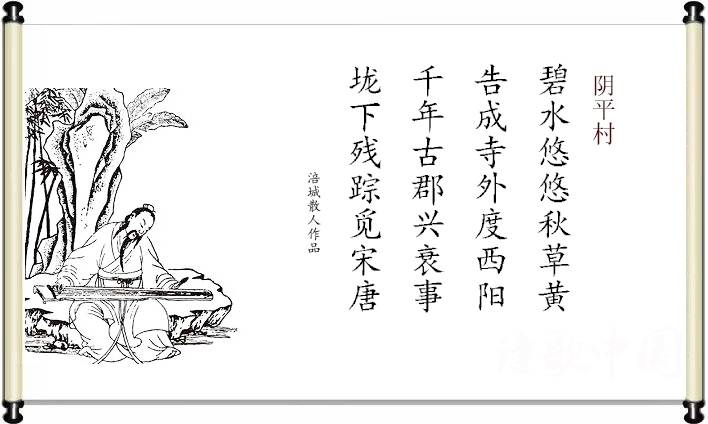 阴平村
碧水悠悠秋草黄
告成寺外度西阳
千年古郡兴衰事
垅下残踪觅宋唐
涪城散人作品
诗歌中国